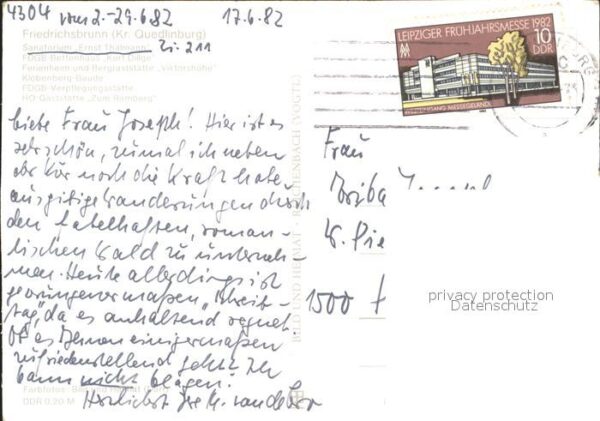 4304 vom 2.-29.6.82 17.6.82
Friedrichsbrunn (Kr. Quedlinburg)
Sanatorium "Ernst Thälmann" Zi. 211
FDGB-Bettenhaus "Kurt Dillge"
Ferienheim und Berggaststätte "Viktorshöhe"
Klobenberg-Baude
FDGB-Verpflegungsstätte
HO-Gaststätte "Zum Ramberg"
Liebe Frau Joseph! Hier ist es
sehr schön, zumal ich neben
der Kur noch die Kraft habe
ausgiebige Wanderungen durch
den fabelhaften, roman-
tischen Wald zu unterneh-
men. Heute allerdings ist
gezwungenermaßen "Schreib-
tag", da es anhaltend regnet.
Ob es Ihnen einigermaßen
zufriedenstellend geht? Ich
kann nicht klagen!
Herzlichst Ihre
Farbfotos:
DDR 0,20 M
BILD UND HEIMAT REICHENBACH (VOGTL)
LEIPZIGER FRÜHJAHRSMESSE 1982
MM
10
DDR
MESSEGELÄNDE
Frau
1500
privacy protection
Datenschutz